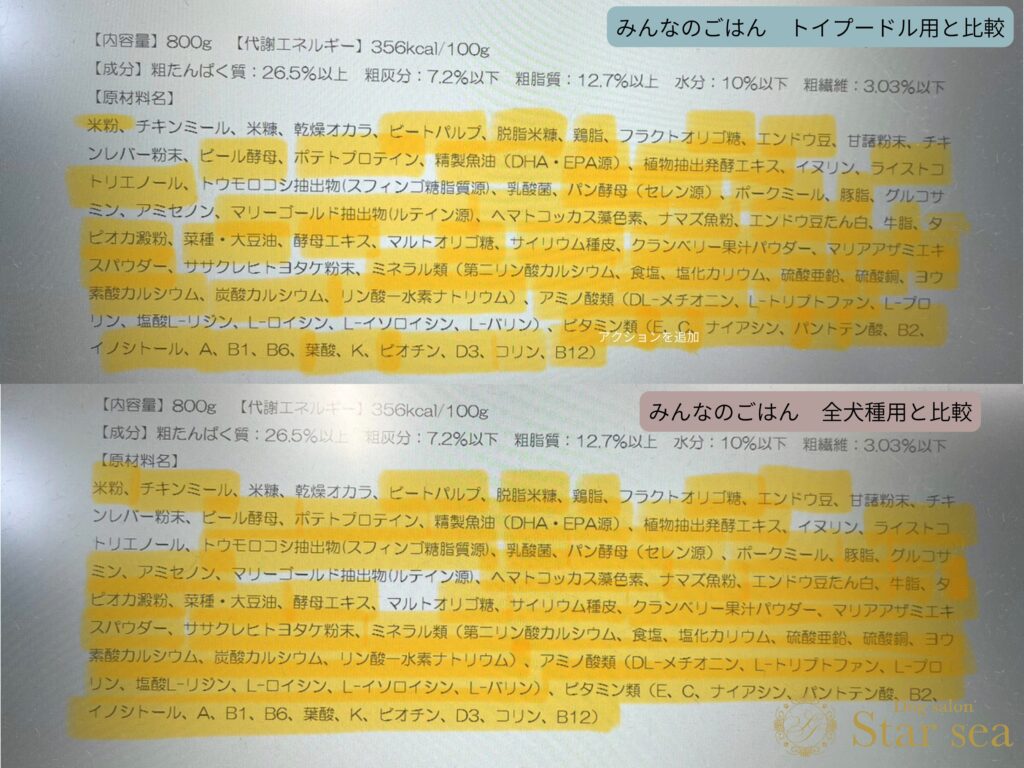 みんなのごはん　トイプードル用と比較
【内容量】800g　【代謝エネルギー】356kcal/100g
【成分】粗たんぱく質：26.5%以上　粗灰分：7.2%以下　粗脂質：12.7%以上　水分：10%以下　粗繊維：3.03%以下
【原材料名】
米粉、チキンミール、米糠、乾燥オカラ、ビートパルプ、脱脂米糠、鶏脂、フラクトオリゴ糖、エンドウ豆、甘藷粉末、チキ
ンレバー粉末、ビール酵母、ポテトプロテイン、精製魚油（DHA・EPA源）、植物抽出発酵エキス、イヌリン、ライストコ
トリエノール、トウモロコシ抽出物(スフィンゴ糖脂質源)、乳酸菌、パン酵母（セレン源）、ポークミール、豚脂、グルコサ
ミン、アミセノン、マリーゴールド抽出物(ルテイン源)、ヘマトコッカス藻色素、ナマズ魚粉、エンドウ豆たん白、牛脂、タ
ピオカ澱粉、菜種・大豆油、酵母エキス、マルトオリゴ糖、サイリウム種皮、クランベリー果汁パウダー、マリアアザミエキ
スパウダー、ササクレヒトヨタケ粉末、ミネラル類（第二リン酸カルシウム、食塩、塩化カリウム、硫酸亜鉛、硫酸銅、ヨウ
素酸カルシウム、炭酸カルシウム、リン酸一水素ナトリウム）、アミノ酸類（DL-メチオニン、L-トリプトファン、L-プロ
リン、塩酸L-リジン、L-ロイシン、L-イソロイシン、L-バリン）、ビタミン類（E、C、ナイアシン、パントテン酸、B2、
アクションを追加
イノシトール、A、B1、B6、葉酸、K、ビオチン、D3、コリン、B12）
みんなのごはん　全犬種用と比較
【内容量】800g　【代謝エネルギー】356kcal/100g
【成分】粗たんぱく質：26.5%以上　粗灰分：7.2%以下　粗脂質：12.7%以上　水分：10%以下　粗繊維：3.03%以下
【原材料名】
米粉、チキンミール、米糠、乾燥オカラ、ビートパルプ、脱脂米糠、鶏脂、フラクトオリゴ糖、エンドウ豆、甘藷粉末、チキ
ンレバー粉末、ビール酵母、ポテトプロテイン、精製魚油（DHA・EPA源）、植物抽出発酵エキス、イヌリン、ライストコ
トリエノール、トウモロコシ抽出物(スフィンゴ糖脂質源)、乳酸菌、パン酵母（セレン源）、ポークミール、豚脂、グルコサ
ミン、アミセノン、マリーゴールド抽出物(ルテイン源)、ヘマトコッカス藻色素、ナマズ魚粉、エンドウ豆たん白、牛脂、タ
ピオカ澱粉、菜種・大豆油、酵母エキス、マルトオリゴ糖、サイリウム種皮、クランベリー果汁パウダー、マリアアザミエキ
スパウダー、ササクレヒトヨタケ粉末、ミネラル類（第二リン酸カルシウム、食塩、塩化カリウム、硫酸亜鉛、硫酸銅、ヨウ
素酸カルシウム、炭酸カルシウム、リン酸一水素ナトリウム）、アミノ酸類（DL-メチオニン、L-トリプトファン、L-プロ
リン、塩酸L-リジン、L-ロイシン、L-イソロイシン、L-バリン）、ビタミン類（E、C、ナイアシン、パントテン酸、B2、
イノシトール、A、B1、B6、葉酸、K、ビオチン、D3、コリン、B12）
Dog salon
Star sea